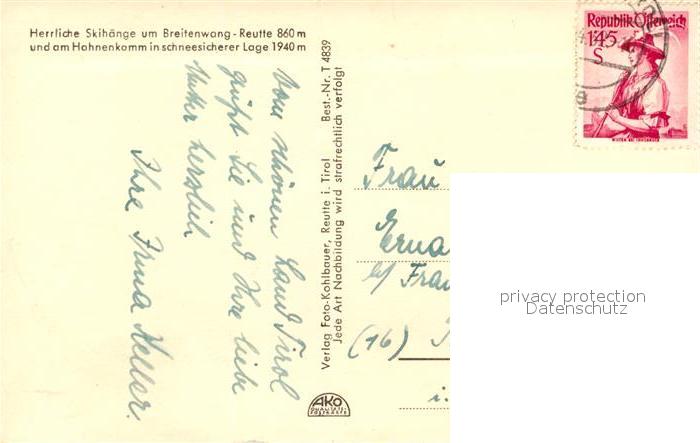 Herrliche Skihänge um Breitenwang-Reutte 860 m
und am Hahnenkamm in schneesicherer Lage 1940 m
Vom schönen Land Tirol
grüßt Sie und Ihre liebe
Mutter herzlich
Ihre Irma Keller.
Verlag Foto-Kohlbauer, Reutte i. Tirol Best.-Nr. T 4839
Jede Art Nachbildung wird strafrechtlich verfolgt
AKO
QUALITÄTS-
POSTKARTE
Republik Österreich
1'45
S
Frau
Erna
b/ Frau
(16)
i.
privacy protection
Datenschutz